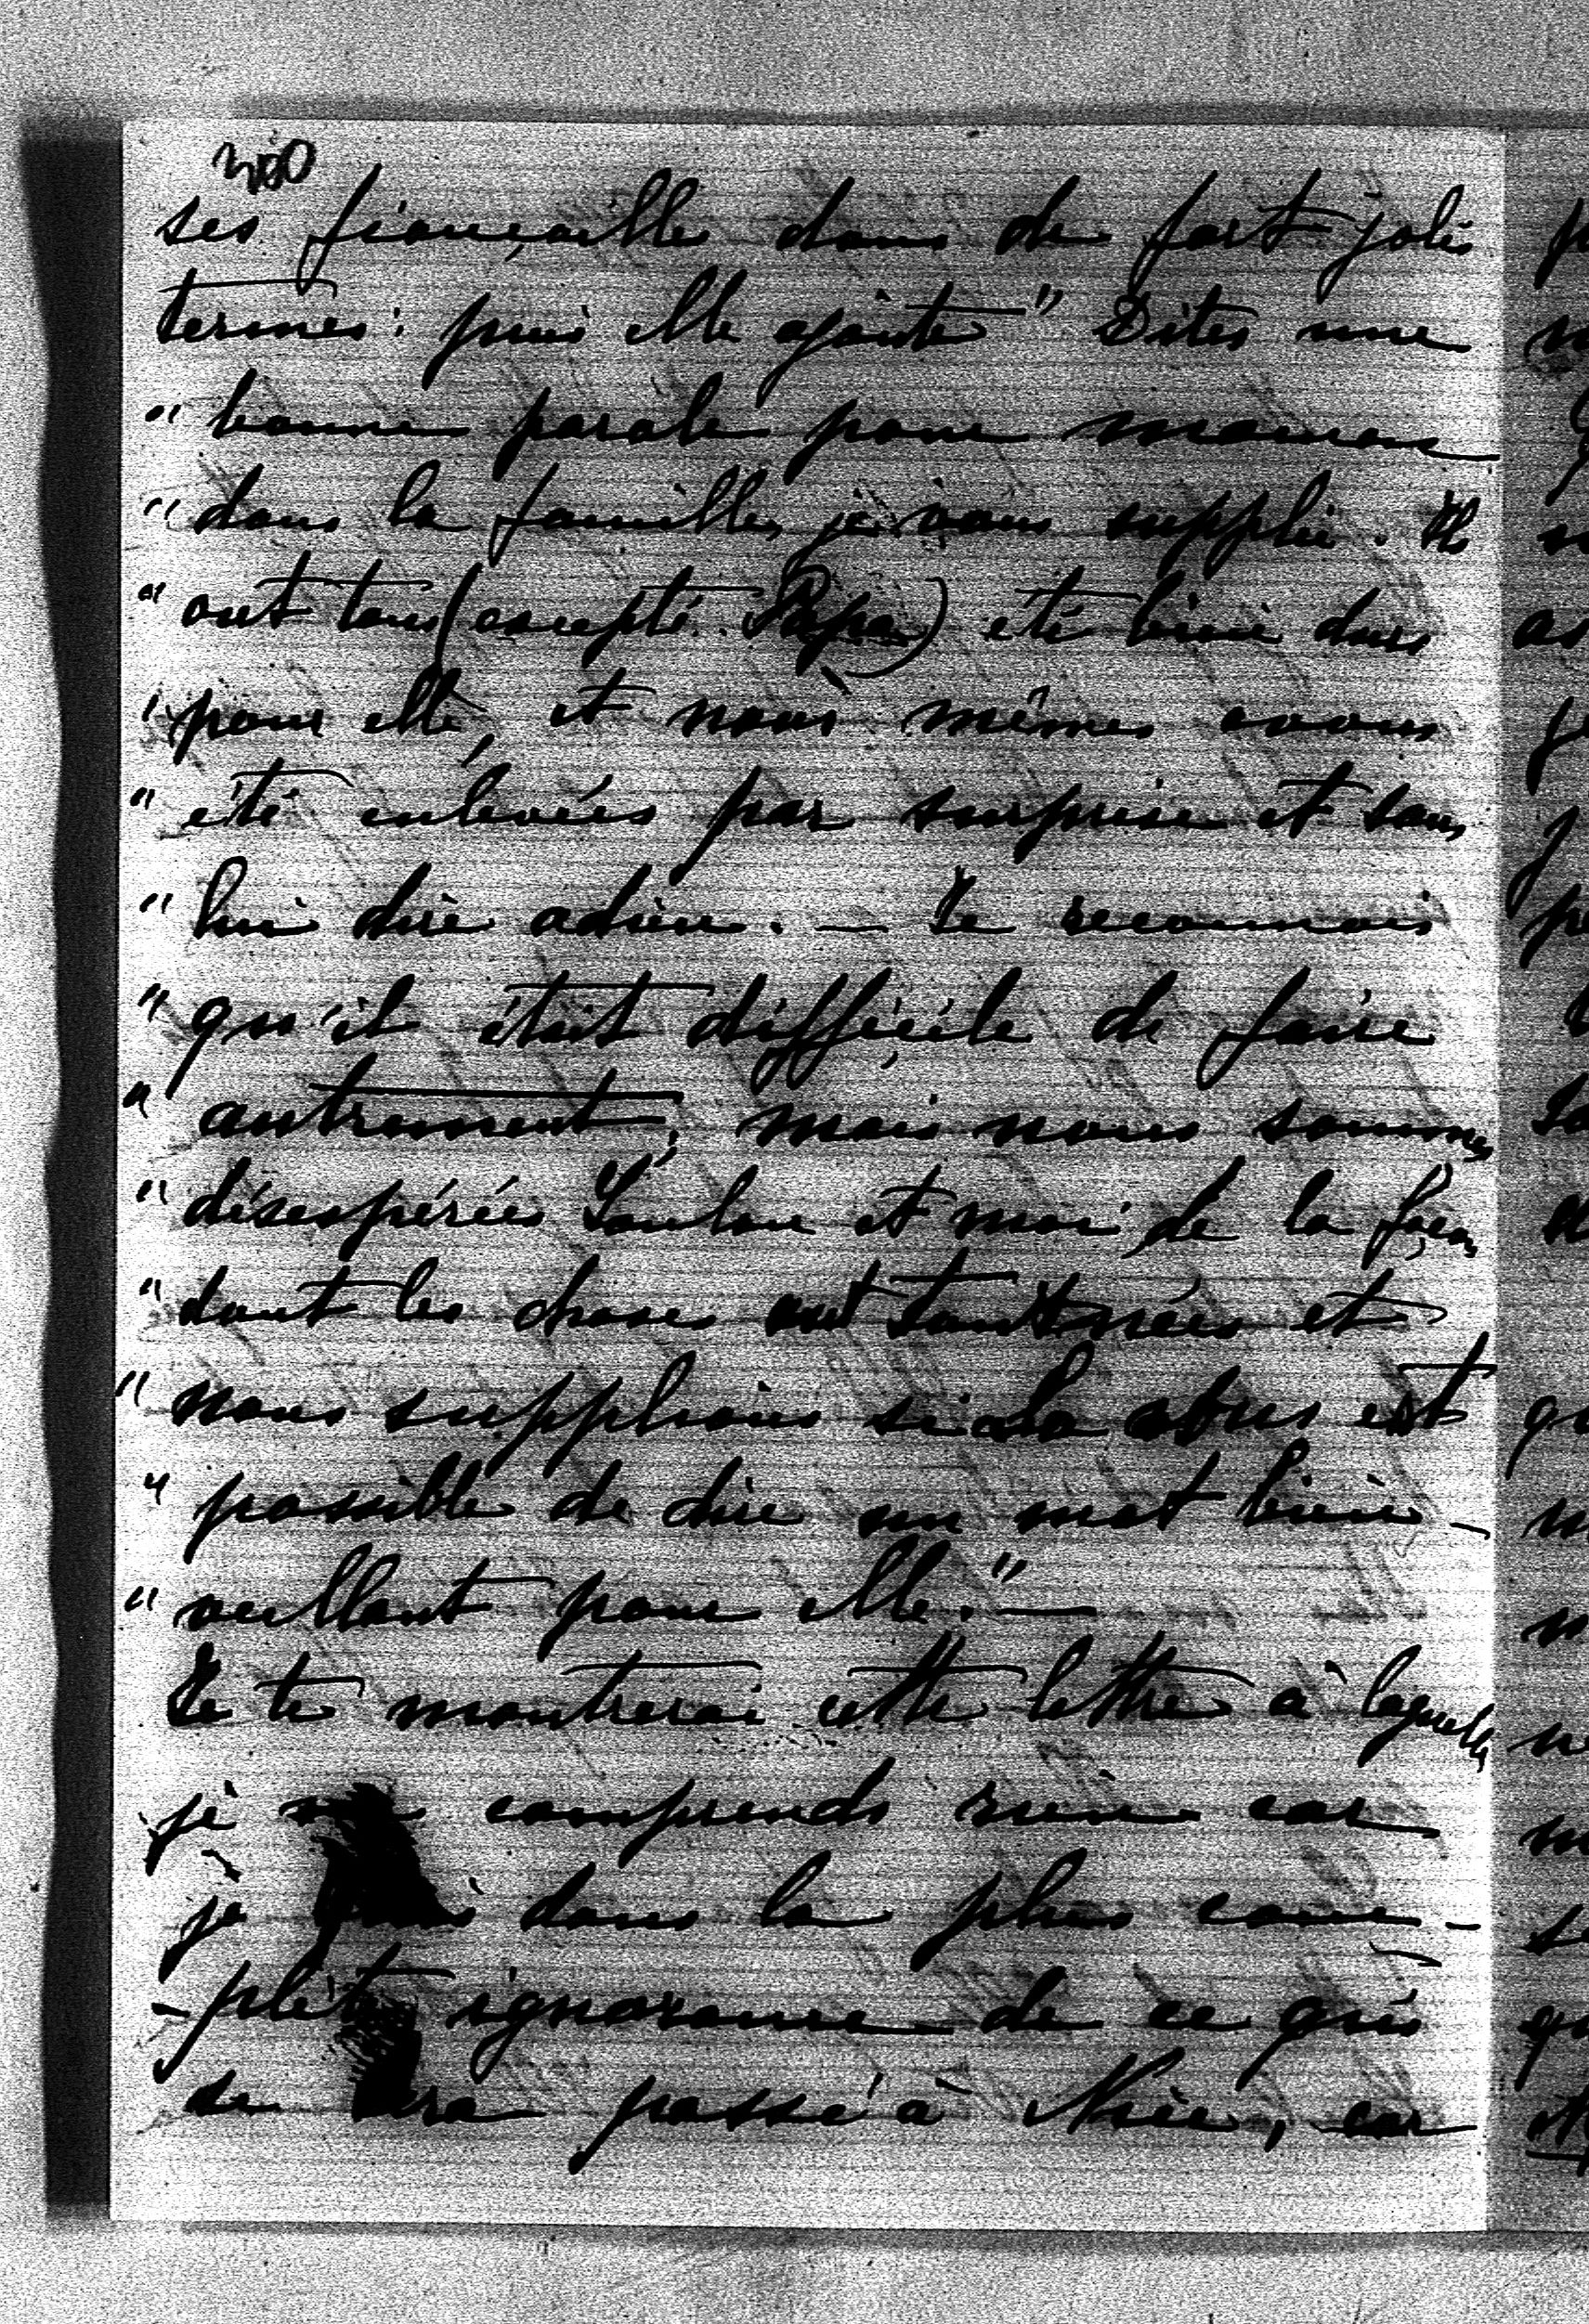 300
ses fiançailles dans de fort jolis
termes : puis elle ajoute " Dites une
" bonne parole pour maman
" dans la famille, je vous supplie. Ils
" ont tous (excepté Papa) été bien durs
" pour elle, et nous mêmes avons
" été enlevées par surprise et sans
" lui dire adieu. — Je reconnais
" qu'il était difficile de faire
" autrement, mais nous sommes
" désespérées Loulou et moi, de la façon
" dont les choses ont tournées et
" nous supplions si cela vous est
" possible de dire un mot bien-
" veillant pour elle." —
Je te montrerai cette lettre à laquelle
je ne comprends rien car
je suis dans la plus com-
-plète ignorance de ce qui
se sera passé à Nice, car